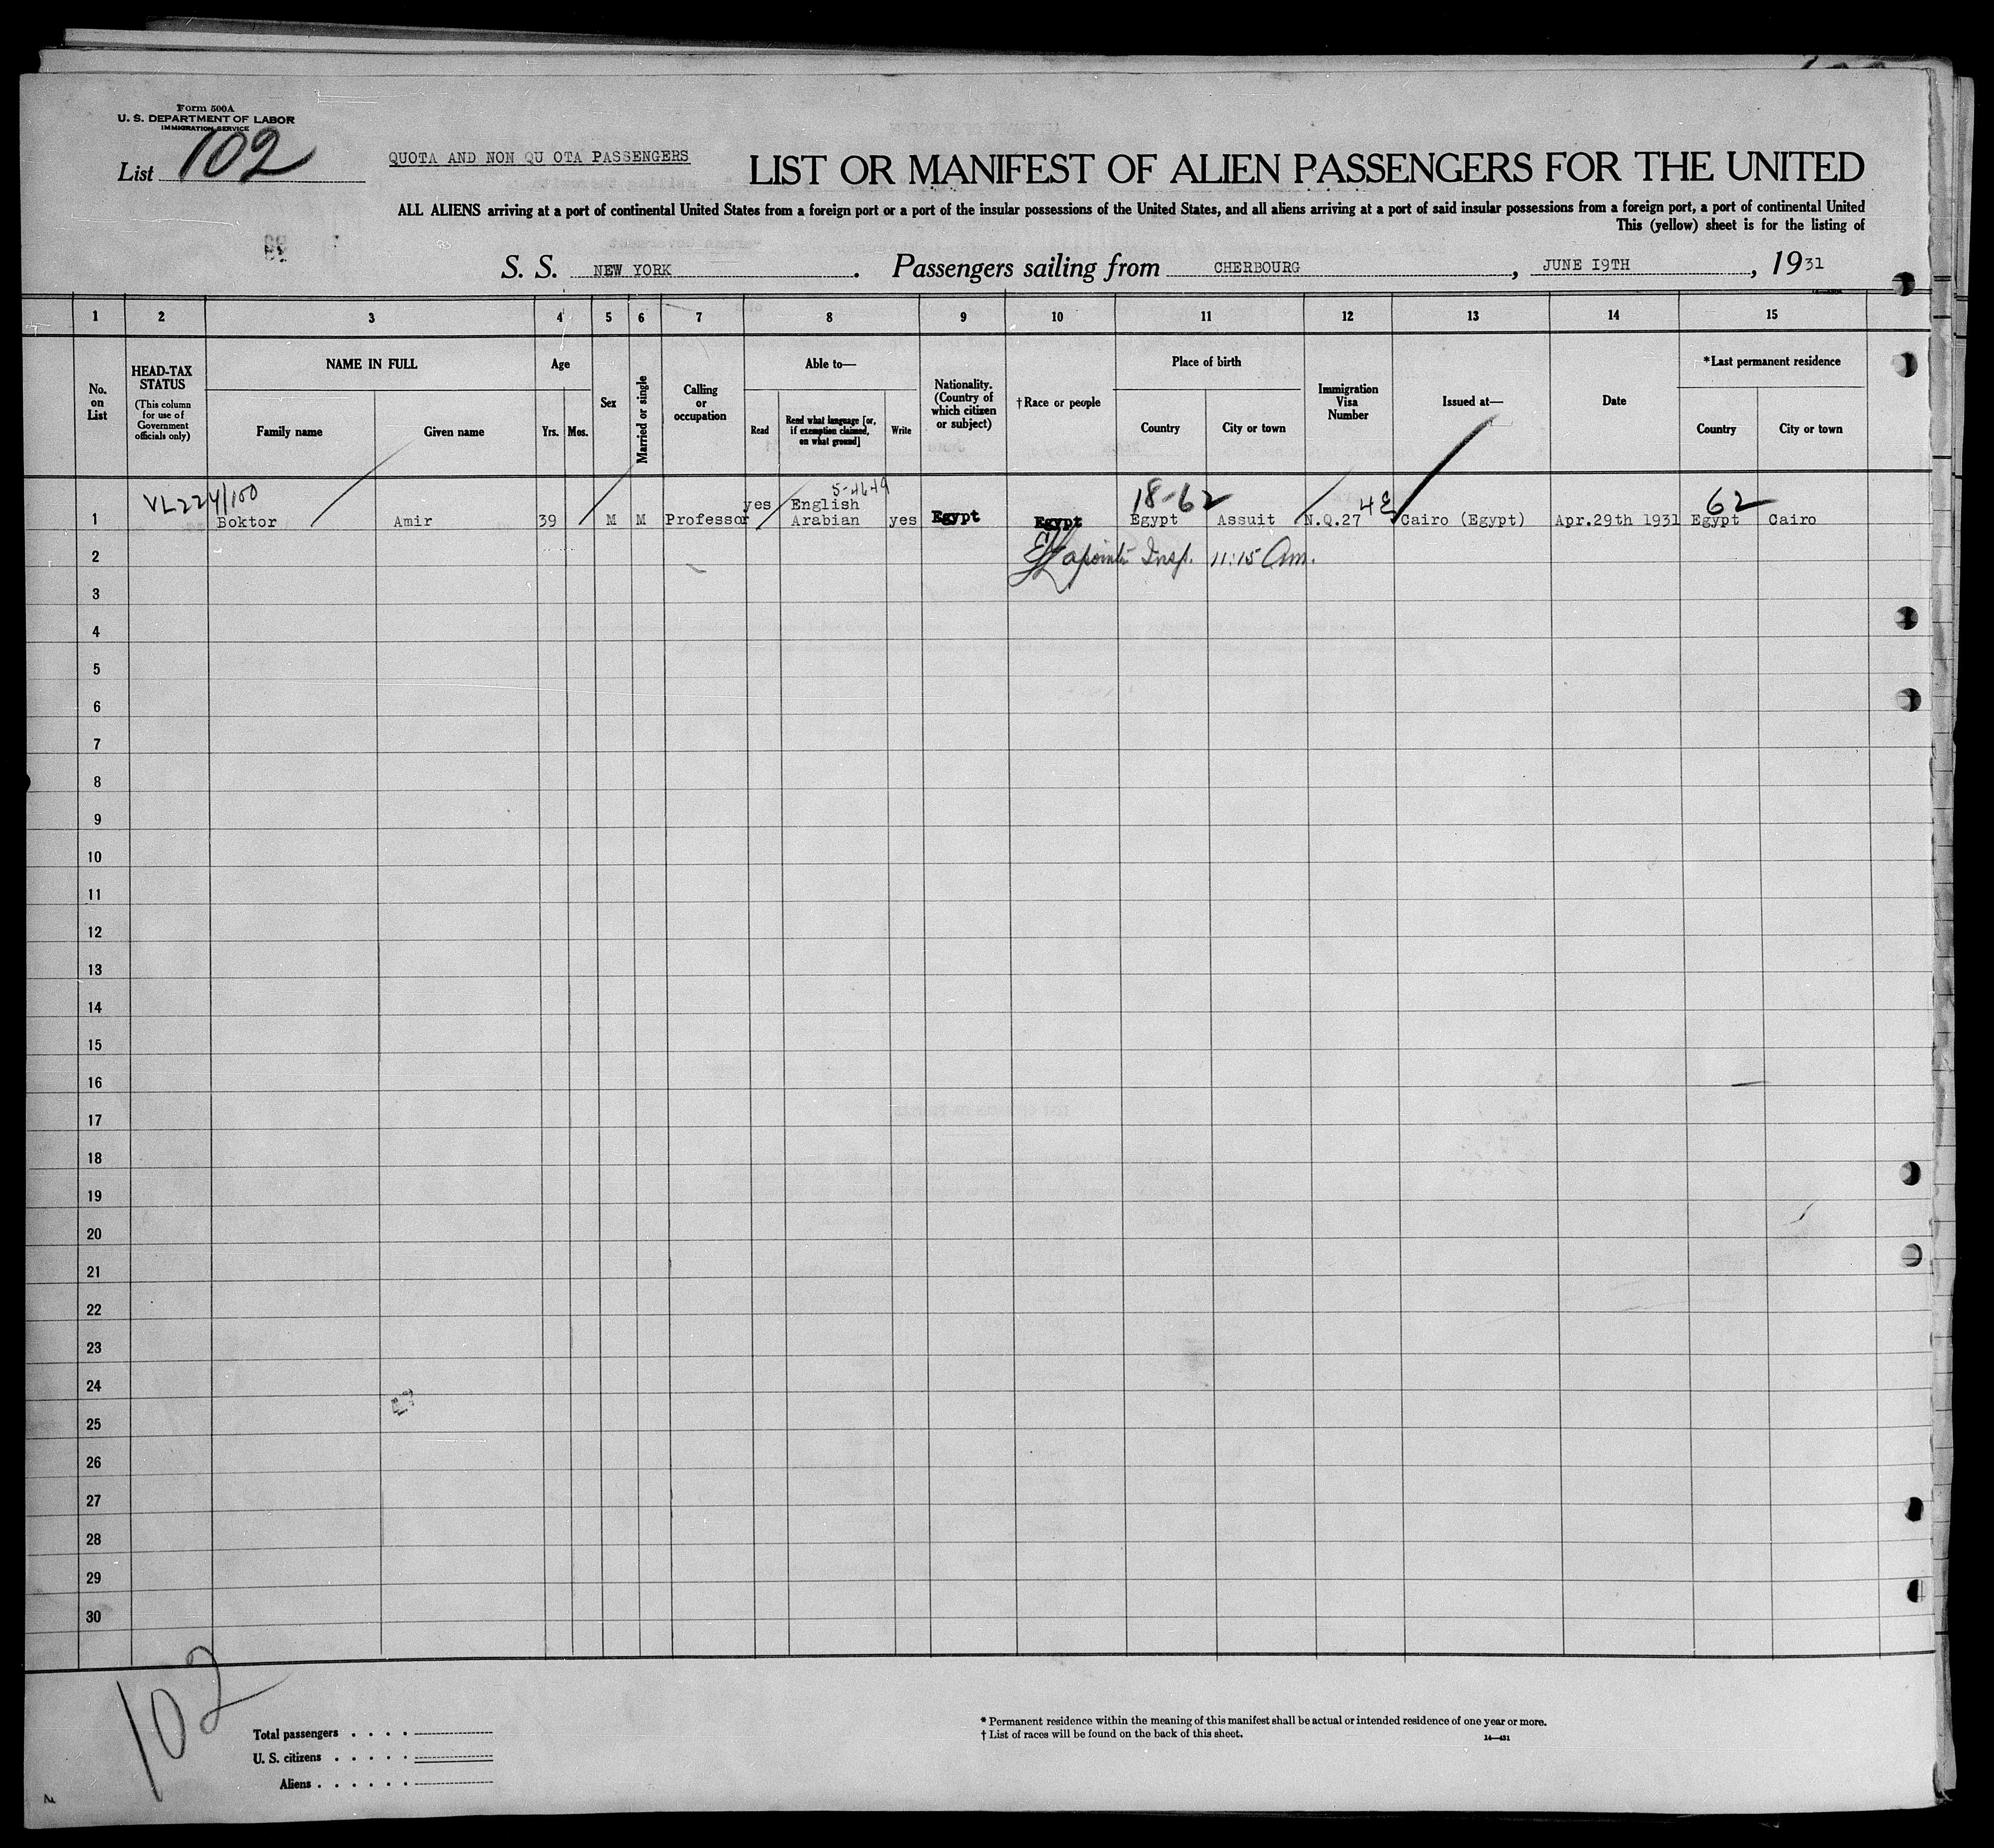 Form 500A
U. S. DEPARTMENT OF LABOR
IMMIGRATION SERVICE
List 102
QUOTA AND NON QU OTA PASSENGERS
LIST OR MANIFEST OF ALIEN PASSENGERS FOR THE UNITED
ALL ALIENS arriving at a port of continental United States from a foreign port or a port of the insular possessions of the United States, and all aliens arriving at a port of said insular possessions from a foreign port, a port of continental United
This (yellow) sheet is for the listing of
S. S. NEW YORK . Passengers sailing from CHERBOURG , JUNE I9TH , 1931
1 2 3 4 5 6 7 8 9 10 11 12 13 14 15
No. on List
HEAD-TAX STATUS
(This column for use of Government officials only)
NAME IN FULL
Family name
Given name
Age
Yrs.
Mos.
Sex
Married or single
Calling or occupation
Able to—
Read
Read what language [or, if exemption claimed, on what ground]
Write
Nationality. (Country of which citizen or subject)
†Race or people
Place of birth
Country
City or town
Immigration Visa Number
Issued at—
Date
*Last permanent residence
Country
City or town
VL 224/100
5-4649
18-62
4E
62
1 Boktor Amir 39 M M Professor yes English Arabian yes Egypt Egypt Egypt Assuit N.Q.27 Cairo (Egypt) Apr.29th 1931 Egypt Cairo
2 Insp. 11:15 Am.
3
4
5
6
7
8
9
10
11
12
13
14
15
16
17
18
19
20
21
22
23
24
25
26
27
28
29
30
102
Total passengers . . . .
U. S. citizens . . . . .
Aliens . . . . . .
* Permanent residence within the meaning of this manifest shall be actual or intended residence of one year or more.
† List of races will be found on the back of this sheet.
14—431